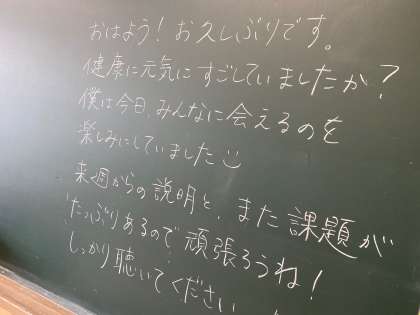 おはよう！お久しぶりです。
健康に元気にすごしていましたか？
僕は今日、みんなに会えるのを
楽しみにしていました
来週からの説明と、また課題が
たっぷりあるので頑張ろうね！
しっかり聴いてください